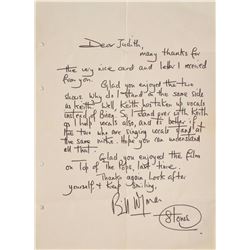 Dear Judith,
many thanks for
the very nice card and letter I received
from you.
Glad you enjoyed the two
shows. Why do I stand on the same side
as Keith? Well Keith has taken up vocals
instead of Brian, so I stand over with Keith
as I help vocals also, and to better if
the two who are singing vocals stand at
the same mike. Hope you can understand
all that.
Glad you enjoyed the film
on Top of The Pops, last time.
Thanks again. Look after
yourself & keep smiling.
Bill Wyman
Stones